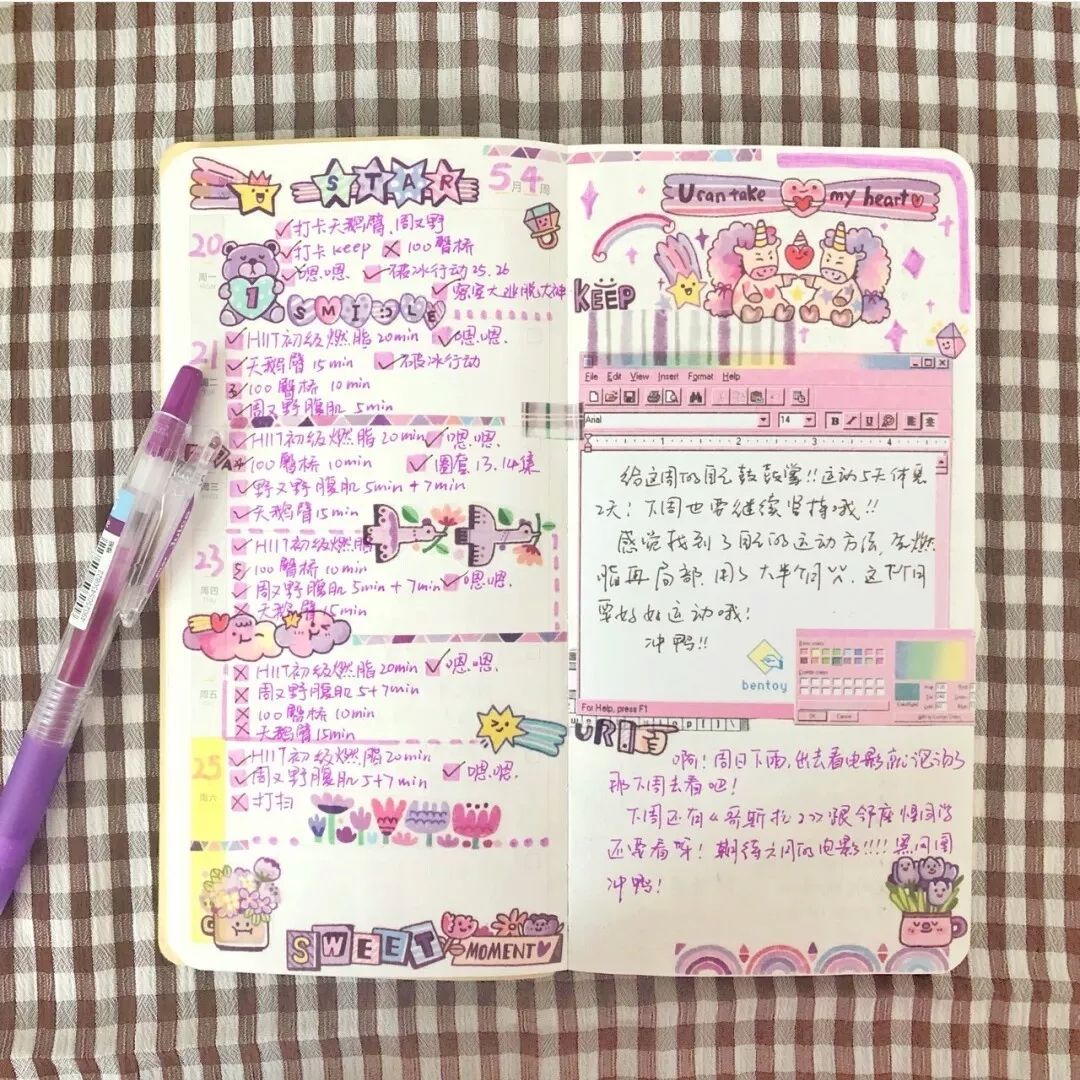 STAR
5月4周
20
周一
✓打卡天鹅臂、周又野
✓打卡keep ×100臀桥
✓嗯嗯. ✓破冰行动25.26
✓密室大逃脱大神
1
SMILE
21
✓HIIT初级燃脂20min ✓嗯嗯.
✓天鹅臂15min ✓破冰行动
100臀桥 10min
✓周又野腹肌 5min
周三
✓HIIT初级燃脂20min ✓嗯嗯.
100臀桥 10min ✓
✓野又野腹肌 5min+7min
✓天鹅臂15min
23
周四
✓HIIT初级燃脂
100臀桥 10min
✓周又野腹肌 5min+7min ✓嗯嗯.
×天鹅臂15min
周五
×HIIT初级燃脂20min ✓嗯嗯.
×周又野腹肌5+7min
×100臀桥 10min
×天鹅臂15min
25
周六
✓HIIT初级燃脂20min
✓周又野腹肌 5+7min ✓嗯嗯.
×打扫
SWEET MOMENT
U can take my heart
KEEP
File Edit View Insert Format Help
Arial 14 B I U
1 2 3 4
给这周的自己鼓鼓掌!!运动5天休息
2天! 下周也要继续坚持哦!!
感觉找到了自己的运动方法,先燃
脂再局部.用了大半个月 这下个月
要好好运动哦!
冲鸭!!
bentoy
For Help, press F1
OK Cancel
UR
啊!周日下雨,出去看电影就泡汤了
那下周去看吧!
下周还有《哥斯拉2》跟邻座怪同学
还要看呀!期待六月的电影!!!!
冲鸭!